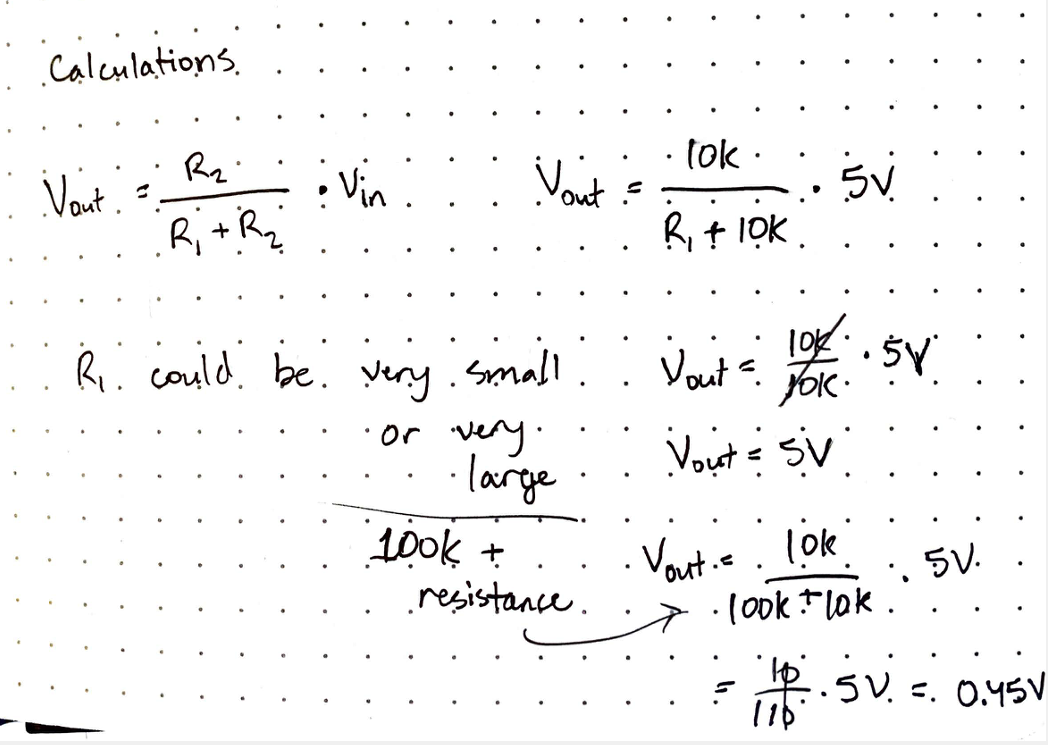 Calculations.
Vout = R2 / (R1 + R2) · Vin
Vout = 10k / (R1 + 10K) · 5V
R1 could be very small
or very
large
Vout = 10k / 10K · 5V
Vout = 5V
100k +
resistance
Vout = 10k / (100k + 10k) · 5V
= 10 / 110 · 5V = 0.45V